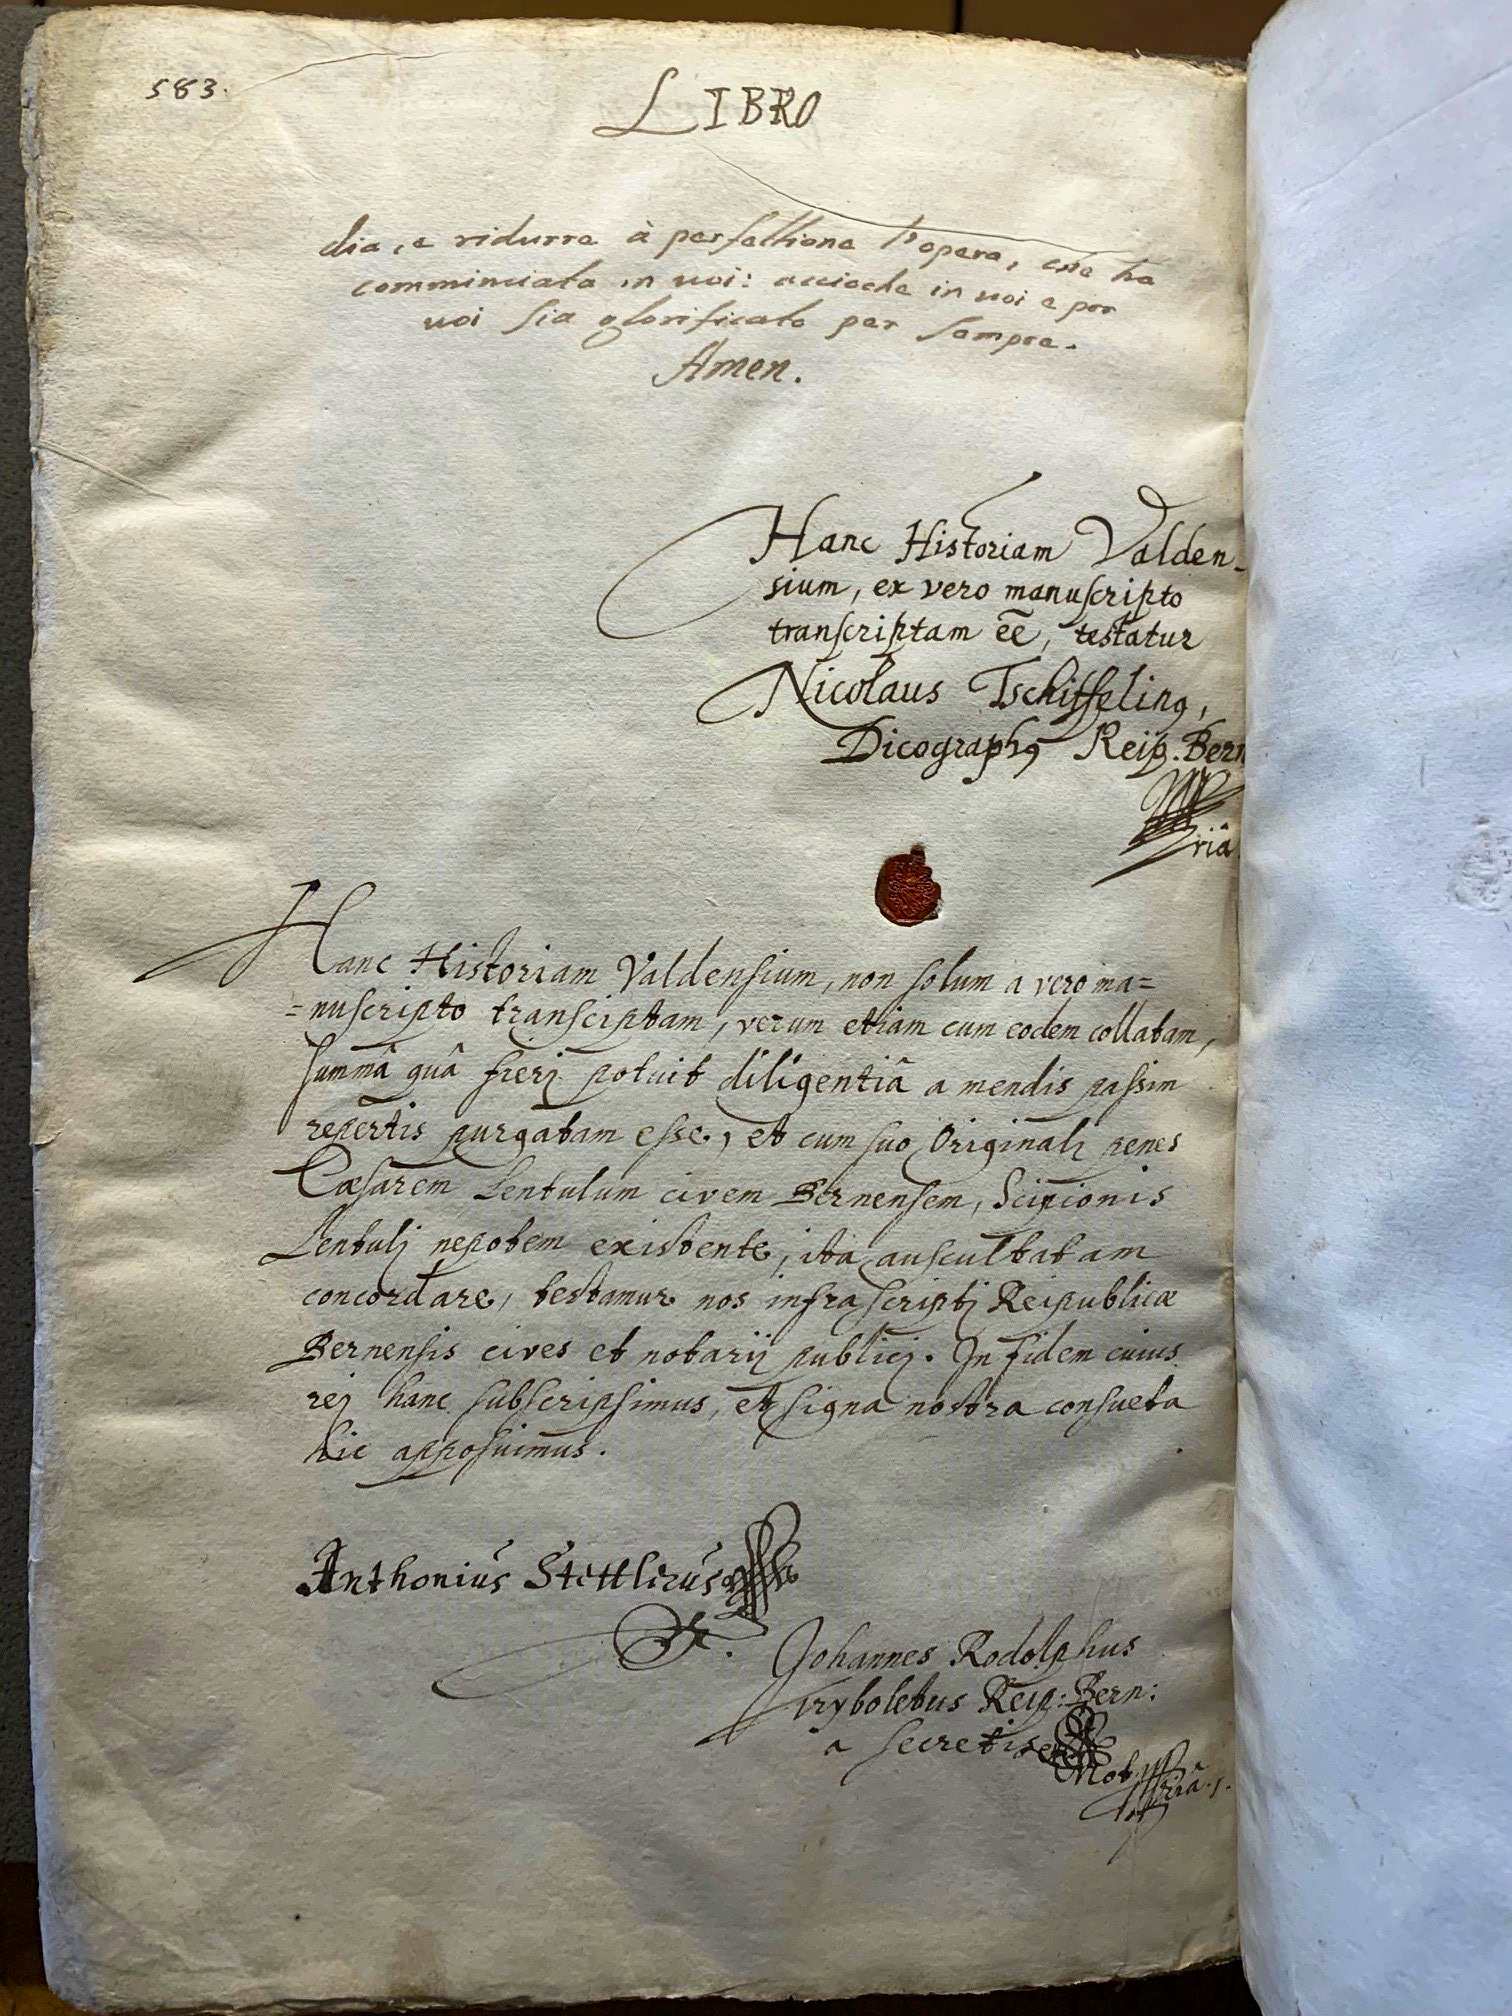 583.
LIBRO
dia, e ridurre à perfettione l'opera, che ha
comminciata in voi: accioche in voi e per
voi sia glorificato per sempre.
Amen.
Hanc Historiam Valden-
sium, ex vero manuscripto
transcriptam eē, testatur
Nicolaus Tschiffeling,
Dicographꝰ Reip. Bern
riâ
Hanc Historiam Valdensium, non solum a vero ma=
=nuscripto transciptam, verum etiam cum eodem collatam,
summâ quâ fierj potuit diligentiâ a mendis passim
repertis purgatam esse, et cum suo Originalj penes
Cæsarem Lentulum civem Bernensem, Scipionis
Lentulj nepotem existente, ita auscultatam
concordare, testamur nos infrascriptj Reipublicæ
Bernensis cives et notarij publicj. In fidem cuius
rej hanc subscripsimus, et signa nostra consueta
hic apposuimus.
Anthonius Stettlerus
Johannes Rodolphus
Vryboletus Reip: Bern:
a secretis
Not. priâ.